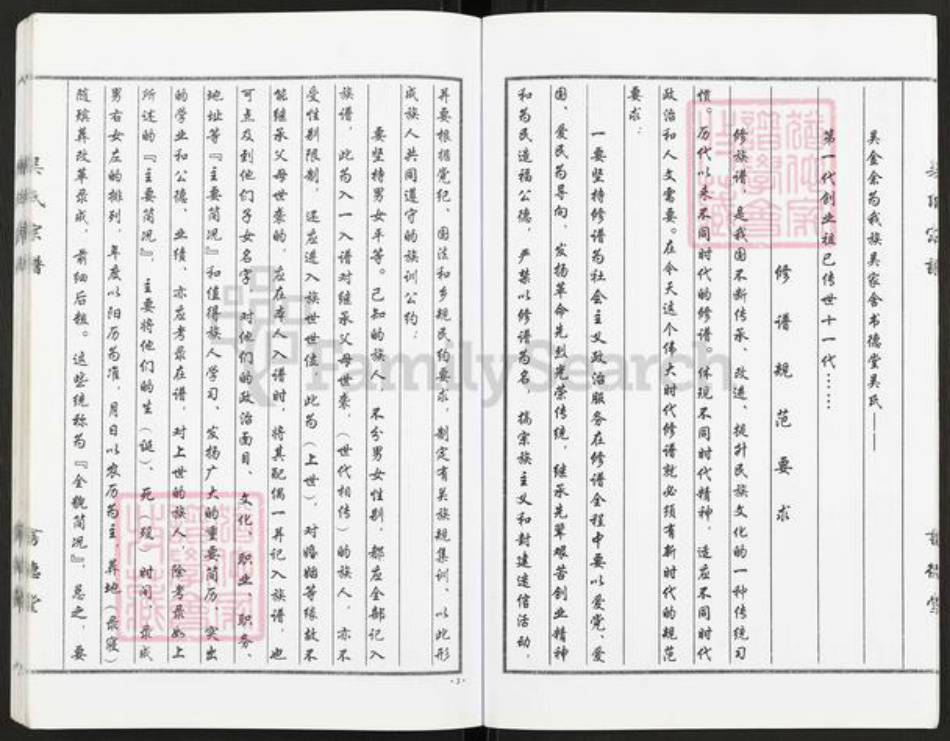 吴金余为我族吴家舍书德堂吴氏——
第一代创业祖已传世十一代……
修谱规范要求
修族谱，是我国不断传承、改进、提升民族文化的一种传统习
惯。历代以来不同时代的修谱。体现不同时代精神，适应不同时代
政治和人文需要。在今天这个伟大时代修谱就必须有新时代的规范
要求：
一要坚持修谱为社会主义政治服务在修谱全程中要以爱党、爱
国、爱民为导向，发扬革命先烈光荣传统，继承先辈艰苦创业精神
和为民造福公德，严禁以修谱为名，搞宗族主义和封建迷信活动，
并要根据党纪、国法和乡规民约要求，制定有关族规集训，以此形
成族人共同遵守的族训公约；
要坚持男女平等。已知的族人，不分男女性别，都应全部记入
族谱，此为入一入谱对继承父母世袭，（世代相传）的族人，亦不
受性别限制，还应进入族世世位，此为（上世），对婚姻等缘故不
能继承父母世袭的，应在本人入谱时，将其配偶一并记入族谱，也
可点及到他们子女名字，对他们的政治面目、文化、职业、职务、
地址等『主要简况』和值得族人学习、发扬广大的重要简历，突出
的学业和公德、业绩、亦应考录在谱，对上世的族人，除考录如上
所述的『主要简况』，主要将他们的生（诞）、死（殁）时间，录成
男右女左的排列，年度以阳历为准，月日以农历为主，葬地（录寝）
随殡葬改革录成，前细后粗。这些统称为『全貌简况』，总之，要
·3·
吴氏宗谱
书德堂
FamilySearch